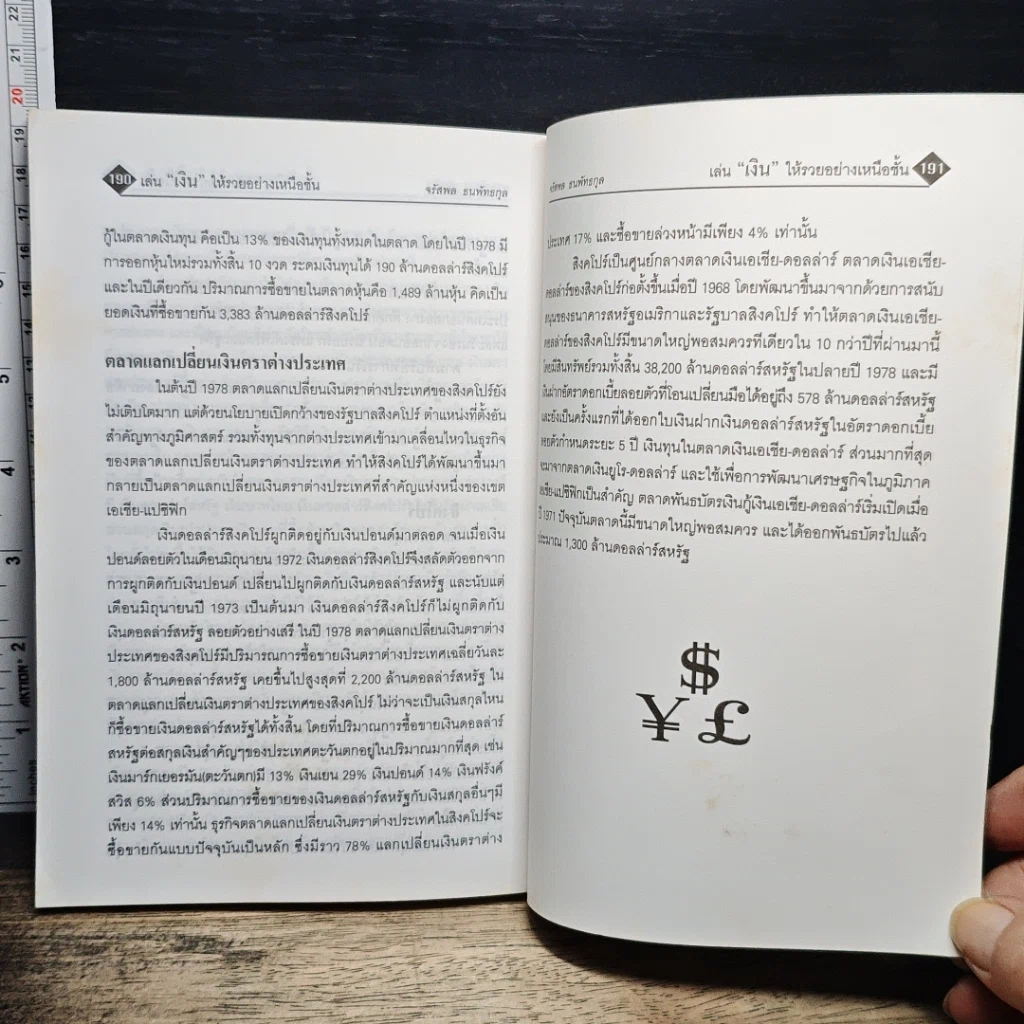 190 เล่น “เงิน” ให้รวยอย่างเหนือชั้น จรัสพล ธนพัทธกุล
กู้ในตลาดเงินทุน คือเป็น 13% ของเงินทุนทั้งหมดในตลาด โดยในปี 1978 มี
การออกหุ้นใหม่รวมทั้งสิ้น 10 งวด ระดมเงินทุนได้ 190 ล้านดอลล่าร์สิงคโปร์
และในปีเดียวกัน ปริมาณการซื้อขายในตลาดหุ้นคือ 1,489 ล้านหุ้น คิดเป็น
ยอดเงินที่ซื้อขายกัน 3,383 ล้านดอลล่าร์สิงคโปร์
ตลาดแลกเปลี่ยนเงินตราต่างประเทศ
ในต้นปี 1978 ตลาดแลกเปลี่ยนเงินตราต่างประเทศของสิงคโปร์ยัง
ไม่เติบโตมาก แต่ด้วยนโยบายเปิดกว้างของรัฐบาลสิงคโปร์ ตำแหน่งที่ตั้งอัน
สำคัญทางภูมิศาสตร์ รวมทั้งทุนจากต่างประเทศเข้ามาเคลื่อนไหวในธุรกิจ
ของตลาดแลกเปลี่ยนเงินตราต่างประเทศ ทำให้สิงคโปร์ได้พัฒนาขึ้นมา
กลายเป็นตลาดแลกเปลี่ยนเงินตราต่างประเทศที่สำคัญแห่งหนึ่งของเขต
เอเชีย-แปซิฟิก
เงินดอลล่าร์สิงคโปร์ผูกติดอยู่กับเงินปอนด์มาตลอด จนเมื่อเงิน
ปอนด์ลอยตัวในเดือนมิถุนายน 1972 เงินดอลล่าร์สิงคโปร์จึงสลัดตัวออกจาก
การผูกติดกับเงินปอนด์ เปลี่ยนไปผูกติดกับเงินดอลล่าร์สหรัฐ และนับแต่
เดือนมิถุนายนปี 1973 เป็นต้นมา เงินดอลล่าร์สิงคโปร์ก็ไม่ผูกติดกับ
เงินดอลล่าร์สหรัฐ ลอยตัวอย่างเสรี ในปี 1978 ตลาดแลกเปลี่ยนเงินตราต่าง
ประเทศของสิงคโปร์มีปริมารณการซื้อขายเงินตราต่างประเทศเฉลี่ยวันละ
1,800 ล้านดอลล่าร์สหรัฐ เคยขึ้นไปสูงสุดที่ 2,200 ล้านดอลล่าร์สหรัฐ ใน
ตลาดแลกเปลี่ยนเงินตราต่างประเทศของสิงคโปร์ ไม่ว่าจะเป็นเงินสกุลไหน
ก็ซื้อขายเงินดอลล่าร์สหรัฐได้ทั้งสิ้น โดยที่ปริมาณการซื้อขายเงินดอลล่าร์
สหรัฐต่อสกุลเงินสำคัญๆของประเทศตะวันตกอยู่ในปริมาณมากที่สุด เช่น
เงินมาร์กเยอรมัน(ตะวันตก)มี 13% เงินเยน 29% เงินปอนด์ 14% เงินฟรังค์
สวิส 6% ส่วนปริมาณการซื้อขายของเงินดอลล่าร์สหรัฐกับเงินสกุลอื่นๆมี
เพียง 14% เท่านั้น ธุรกิจตลาดแลกเปลี่ยนเงินตราต่างประเทศในสิงคโปร์จะ
ซื้อขายกันแบบปัจจุบันเป็นหลัก ซึ่งมีราว 78% แลกเปลี่ยนเงินตราต่าง
จรัสพล ธนพัทธกุล เล่น “เงิน” ให้รวยอย่างเหนือชั้น 191
ประเทศ 17% และซื้อขายล่วงหน้ามีเพียง 4% เท่านั้น
สิงคโปร์เป็นศูนย์กลางตลาดเงินเอเชีย-ดอลล่าร์ ตลาดเงินเอเชีย-
ดอลล่าร์ของสิงคโปร์ก่อตั้งขึ้นเมื่อปี 1968 โดยพัฒนาขึ้นมาจากด้วยการสนับ
สนุนของธนาคารสหรัฐอเมริกาและรัฐบาลสิงคโปร์ ทำให้ตลาดเงินเอเชีย-
ดอลล่าร์ของสิงคโปร์มีขนาดใหญ่พอสมควรทีเดียวใน 10 กว่าปีที่ผ่านมานี้
โดยมีสินทรัพย์รวมทั้งสิ้น 38,200 ล้านดอลล่าร์สหรัฐในปลายปี 1978 และมี
เงินฝากอัตราดอกเบี้ยลอยตัวที่โอนเปลี่ยนมือได้อยู่ถึง 578 ล้านดอลล่าร์สหรัฐ
และยังเป็นครั้งแรกที่ได้ออกใบเงินฝากเงินดอลล่าร์สหรัฐในอัตราดอกเบี้ย
ลอยตัวกำหนดระยะ 5 ปี เงินทุนในตลาดเงินเอเชีย-ดอลล่าร์ ส่วนมากที่สุด
จะมาจากตลาดเงินยูโร-ดอลล่าร์ และใช้เพื่อการพัฒนาเศรษฐกิจในภูมิภาค
เอเชีย-แปซิฟิกเป็นสำคัญ ตลาดพันธบัตรเงินกู้เงินเอเชีย-ดอลล่าร์เริ่มเปิดเมื่อ
ปี 1971 ปัจจุบันตลาดนี้มีขนาดใหญ่พอสมควร และได้ออกพันธบัตรไปแล้ว
ประมาณ 1,300 ล้านดอลล่าร์สหรัฐ
$
¥ £
22
21
20
19
18
17
16
15
14
5
4
3
2
1
AKTION